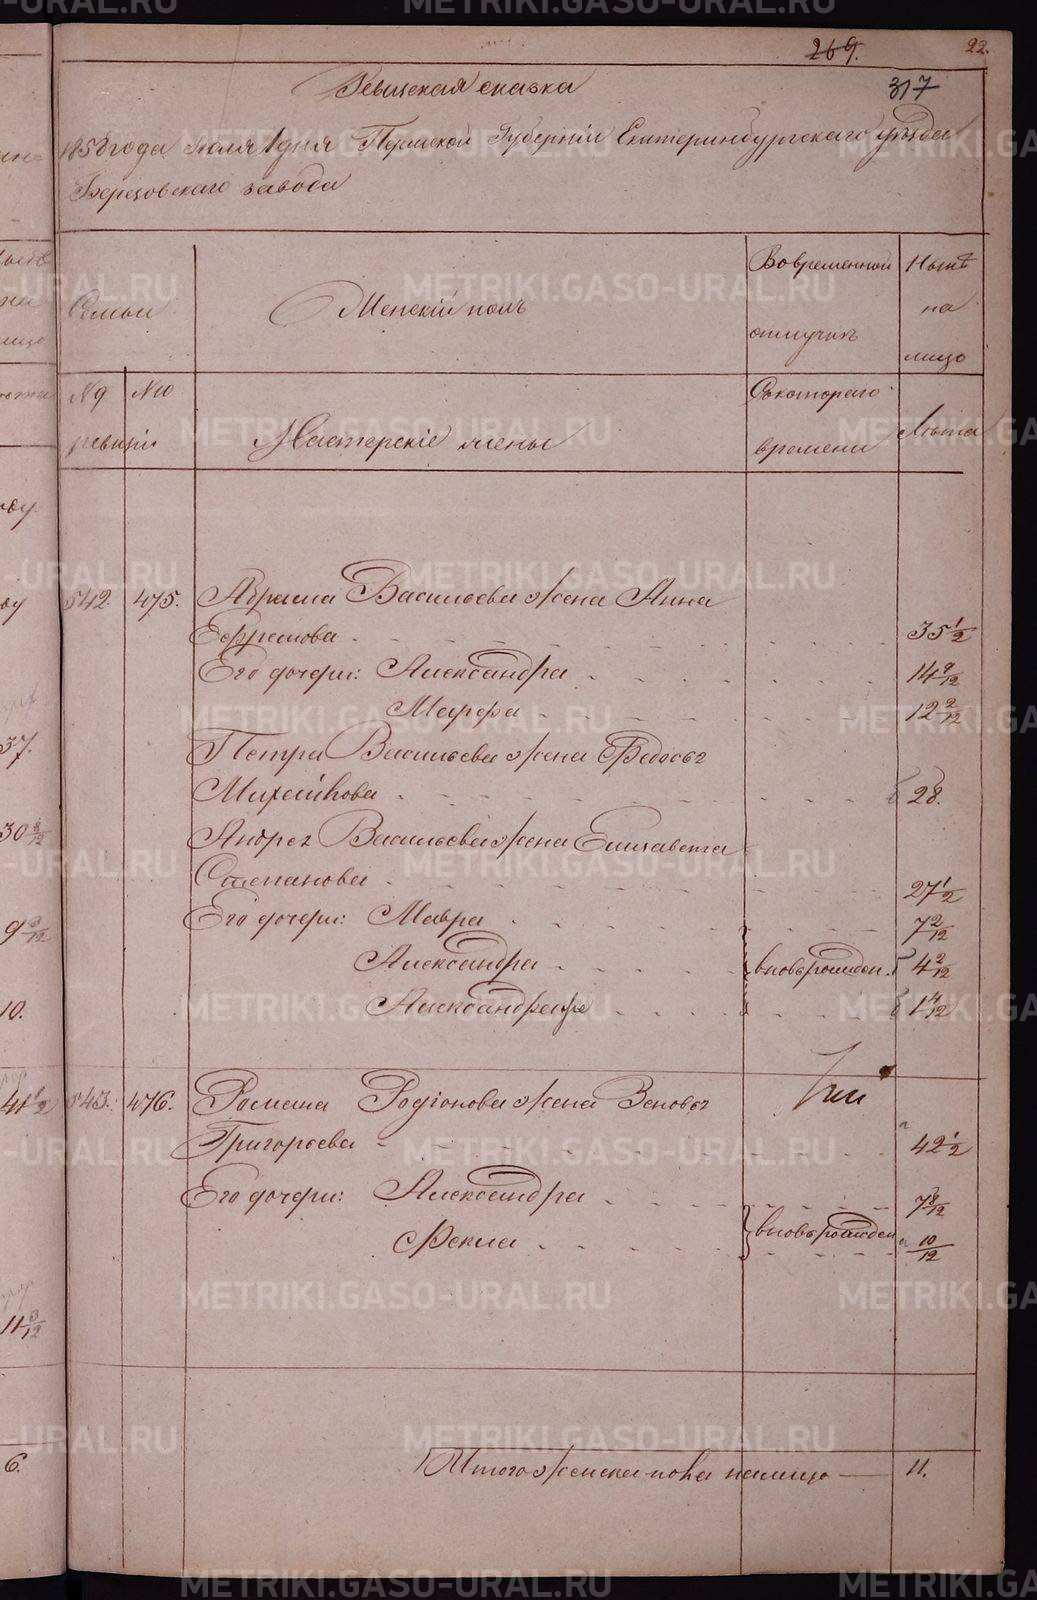 269. 22.
Ревизская сказка 317
1858 года Июля 1 дня Пермской Губернiи Екатеринбургскаго уѣзда
Березовскаго завода
Семьи
Женскiй полъ
Во временной
отлучкѣ
Нынѣ
на
лицо
№ 9 № 10
ревизiи
Мастерскiе члены
Съ котораго
времени
Лѣта
542. 475. Абрама Васильева жена Анна
Ефремова 35 1/2
Его дочери: Александра 14 9/12
Марфа 12 2/12
Петра Васильева жена Федосья
Михайлова 28.
Андрея Васильева жена Елизавета
Степанова 27 1/2
Его дочери: Мавра 7 2/12
Александра вновь рожден. 4 2/12
Александра 1 4/12
543. 476. Романа Родiонова жена Зеновья
Григорьева 42 1/2
Его дочери: Александра 7 8/12
Фекла вновь рожден 10/12
Итого женска пола на лицо 11.
37.
10.
6.
METRIKI.GASO-URAL.RU